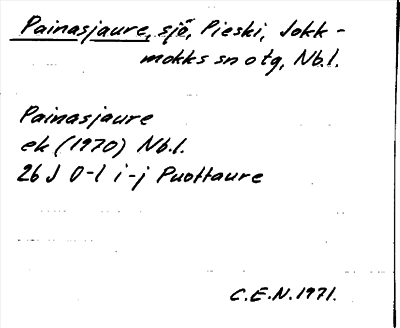 Painasjaure, sjö, Pieski, Jokk-
mokks sn o tg, Nb.l.
Painasjaure
ek (1970) Nb.l.
26 J 0-1 i-j Puottaure
C.E.N. 1971.